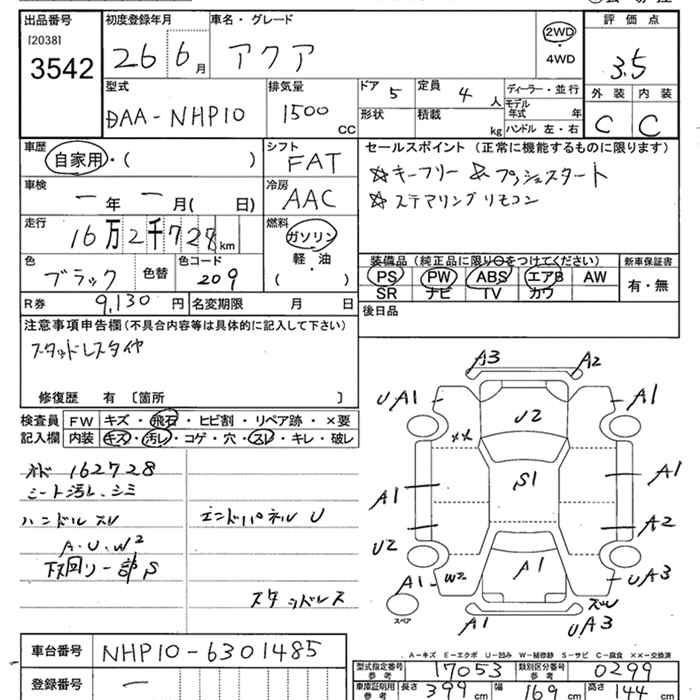 出品番号
[2038]
3542
初度登録年月
26 6月
車名・グレード
アクア
2WD
・
4WD
評価点
3.5
外装 内装
C C
型式
DAA-NHP10
排気量
1500 CC
ドア 5
定員 4 人
形状
積載 kg
ディーラー・並行
モデル年式 年
ハンドル 左・右
車歴
自家用・( )
シフト
FAT
車検
一年一月( 日)
冷房
AAC
走行
16万2千728km
燃料
ガソリン
・
軽油
・
( )
色
ブラック
色替
色コード
209
R券 9,130円
名変期限 月 日
セールスポイント (正常に機能するものに限ります)
☆キーフリー & プッシュスタート
☆ステアリングリモコン
装備品(純正品に限り○をつけてください)
PS PW ABS エアB AW
SR ナビ TV カワ
新車保証書
有・無
後日品
注意事項申告欄(不具合内容等は具体的に記入して下さい)
スタッドレスタイヤ
修復歴 有〔箇所 〕
検査員記入欄
FW キズ・飛石・ヒビ割・リペア跡・×要
内装 キズ・汚レ・コゲ・穴・スレ・キレ・破レ
162728
シート汚レ、シミ
ハンドルスレ
A.U.W2
下回リ一部S
エンドパネルU
スタッドレス
A3 A2
UA1 A1
U2
××
S1
A1 A1
A2
U2
A1
A1 W2 UA3
スペア
A1 UA3
A-キズ E-エクボ U-凹み W-補修跡 S-サビ C-腐食 ××-交換済
車台番号 NHP10-6301485
登録番号 一
型式指定番号 参考 17053
類別区分番号 参考 0299
車庫証明用 参考 長さ 399cm 幅 169cm 高さ 144cm